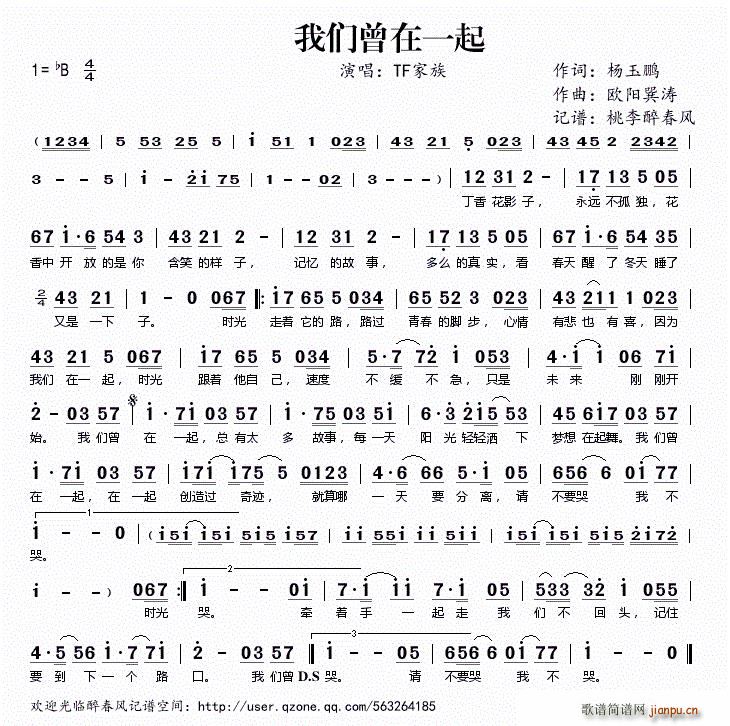 我们曾在一起
1= ♭B 4/4 演唱：TF家族 作词：杨玉鹏
作曲：欧阳巽涛
记谱：桃李醉春风
(1234 | 5 53 25 5 | i 51 1 023 | 43 21 5 023 | 43 45 2 2342 |
3 - - 5 | i - 2i 75 | 1 - - 02 | 3 - - -) | 12 31 2 - | 17 13 5 05 |
丁香花影子， 永远不孤独，花
67 i·6 54 3 | 43 21 2 - | 12 31 2 - | 17 13 5 05 | 67 i·6 54 543 |
香中开放的是你 含笑的样子， 记忆的故事， 多么的真实，看 春天醒了冬天睡了
2/4 43 21 | 1 - 0 067 |: i7 65 5 034 | 65 52 3 023 | 43 211 1 023 |
又是一下 子。 时光 走着它的路，路过 青春的脚步，心情 有悲也有喜，因为
43 21 5 067 | i7 65 5 034 | 5·7 72 i 053 | 4·i i 06 7i |
我们在一起，时光 跟着他自己，速度 不缓不急，只是 未来 刚刚开
2 - 03 57 | i·7i 03 57 | i·7i 03 5i | 6·3 2i5 53 | 45 617 03 57 |
始。 我们曾 在一起，总有太 多故事，每一天 阳光轻轻洒下 梦想在起舞。我们曾
i·7i 03 57 | i7i i75 5 0123 | 4·6 66 5·i 05 | 656 6 0i 77 |
在一起，在一起 创造过奇迹， 就算哪 一天要分离，请 不要哭 我不
1
i - - 0 | (i5i i5i i5i i57 | i5i i5i 22i 5ii | i5i i5i 2i72 |
哭。
i - -) 067 :| i - - 0i | 7·i ii 7·i 05 | 533 32 i 055 |
2
时光 哭。 牵着手一起走我 们不回头，记住
4·5 56 i·7 7i | 2 - 03 57 | i - - 05 | 656 6 0i 77 | i - - 0 ||
3
要到下一个路 口。 我们曾D.S哭。 请 不要哭 我不 哭。
欢迎光临醉春风记谱空间：http://user.qzone.qq.com/563264185
歌谱简谱网
jianpu.cn